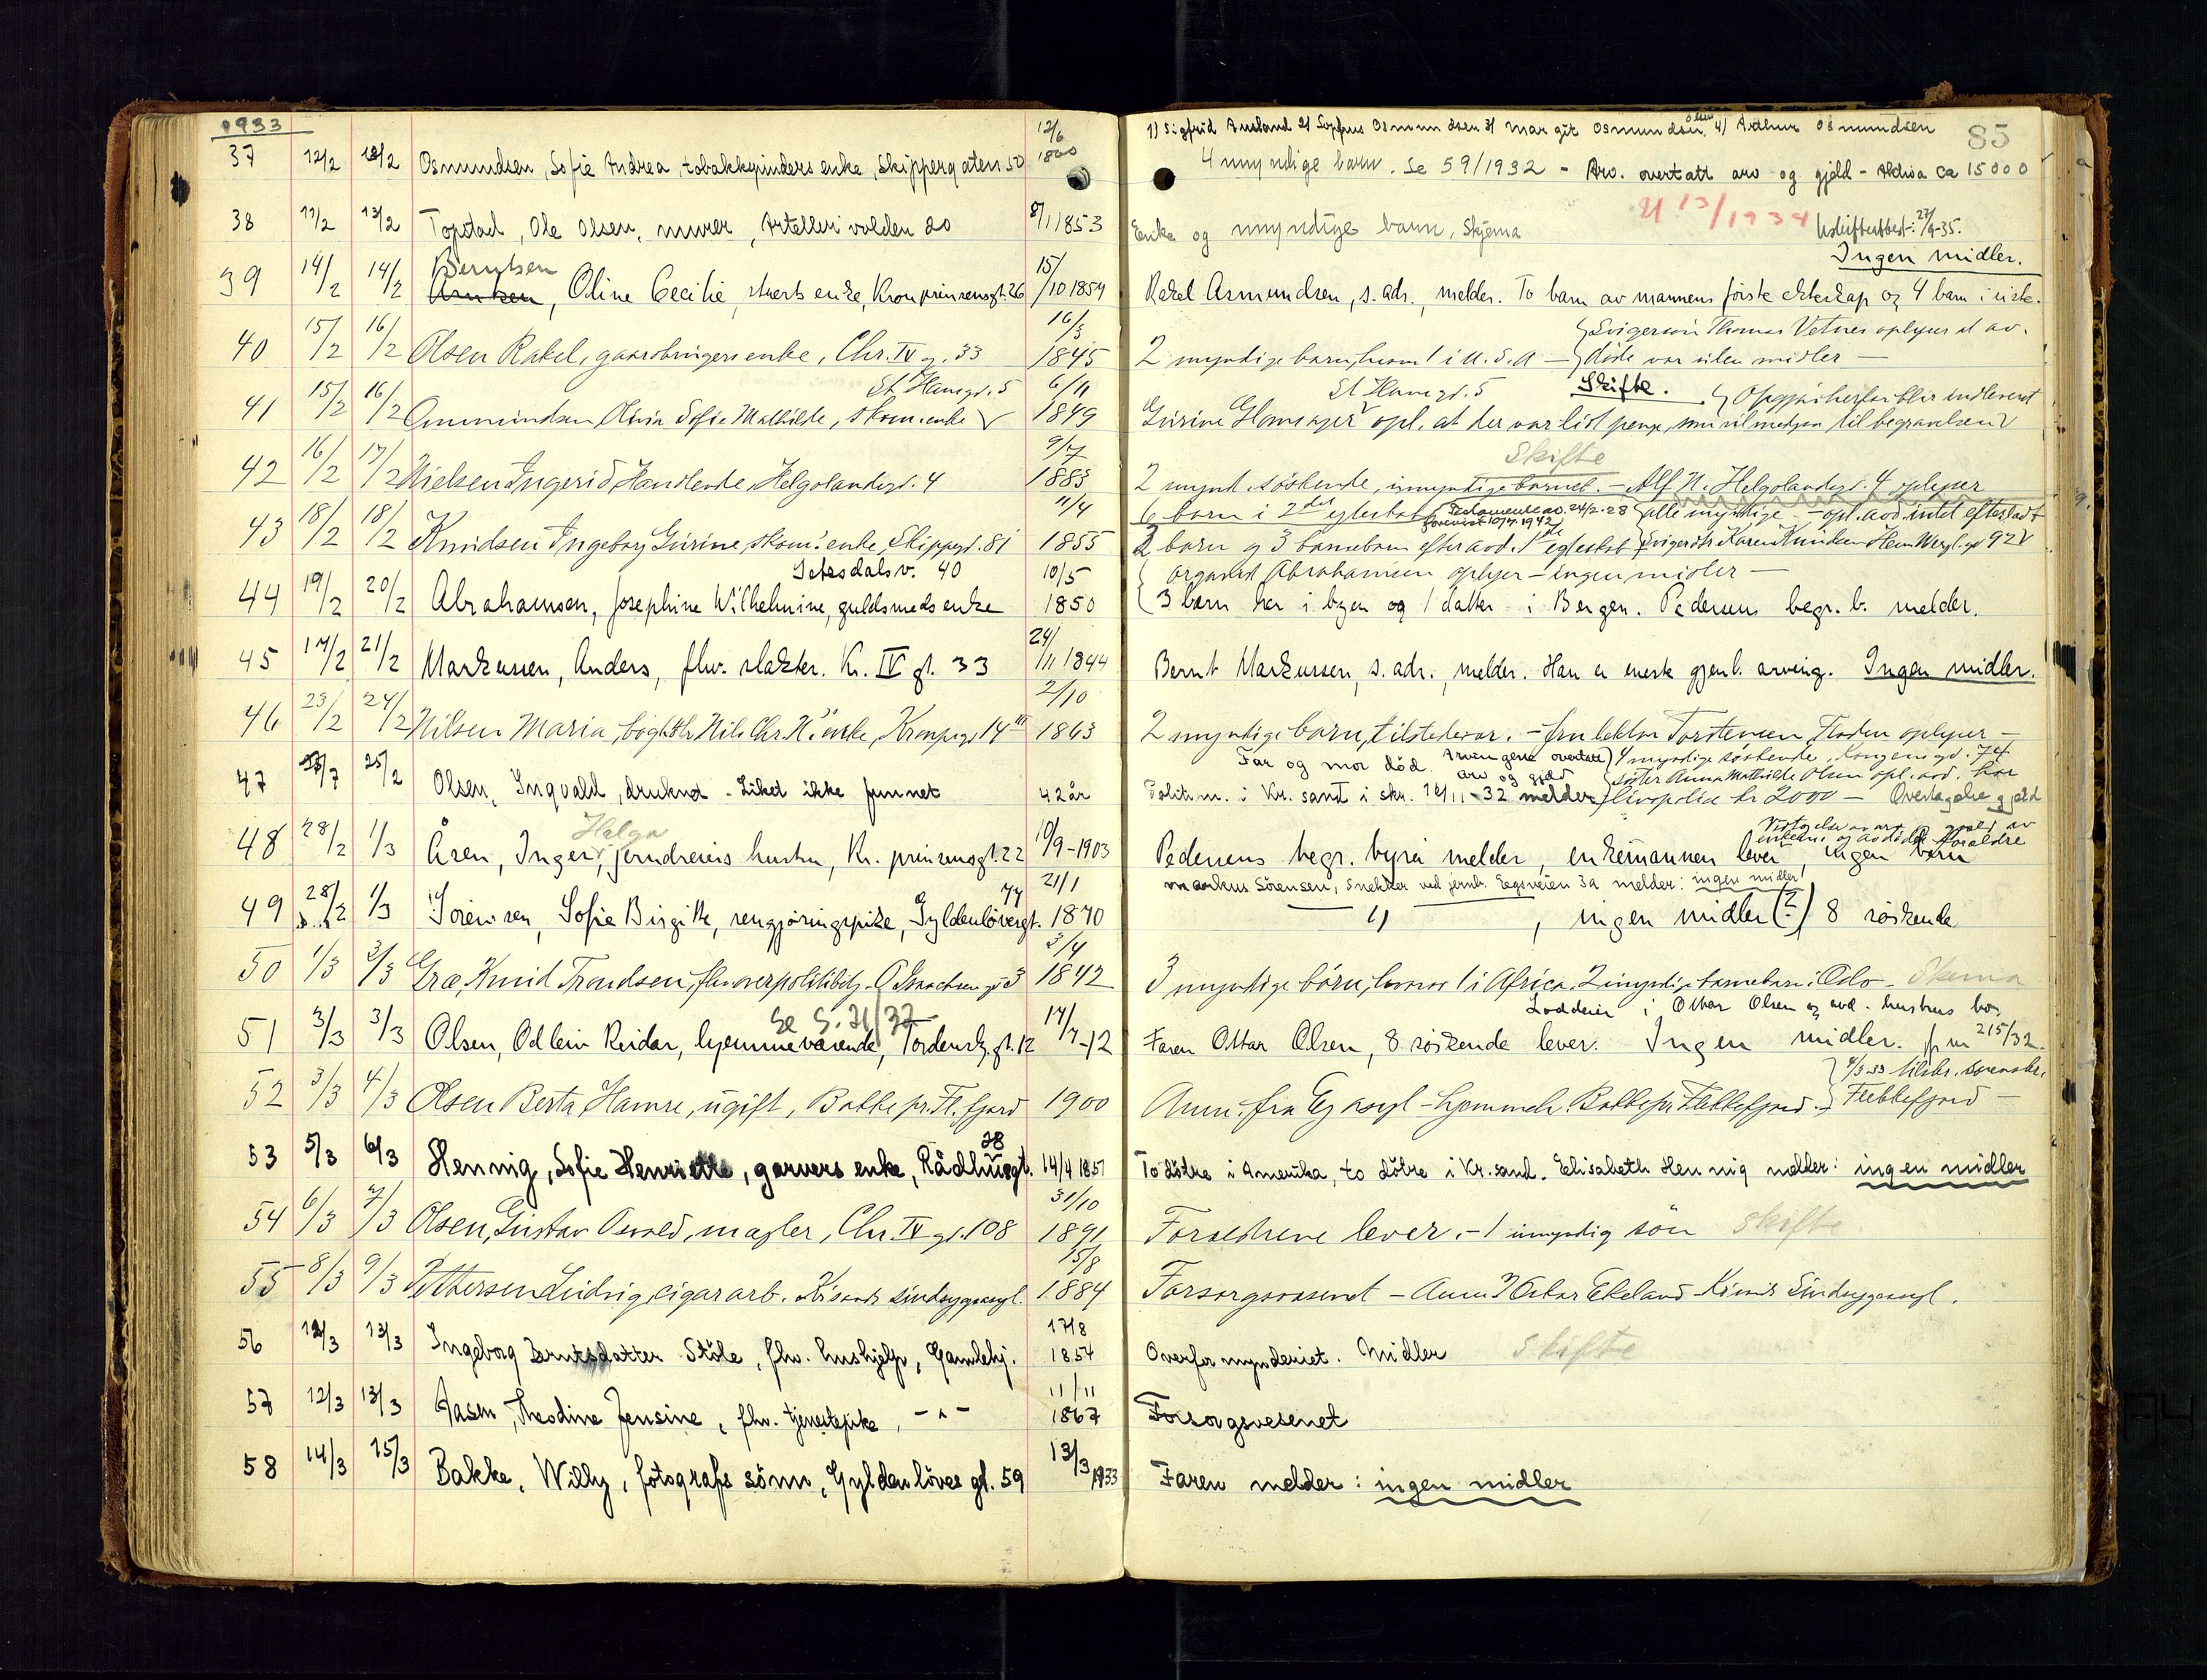 1933
85
12/6
1) Sigfrid Ausland 2) Sophus Osmundsen 3) Margit Osmundsen 4) Arthur Osmundsen
37 12/2 13/2 Osmundsen, Sofie Andrea, tobakkspinders enke, Skippergaten 50 1860 4 myndige barn. Se 59/1932 - Arv. overtatt arv og gjeld - Aktiva ca 15000
38 11/2 13/2 Topstad, Ole Olsen, murer, Artillerivolden 20 8/11 1853 Enke og myndige barn, Skjema U 13/1934 Uskifteattest: 27/9-35.
Ingen midler.
Berntsen 15/
39 14/2 14/2 Oline Cecilie, stuerts enke, Kronprinsensgt. 26 /10 1854 Rakel Asmundsen, s. adr., melder. To barn av mannens første ekteskap og 4 barn i siste.
16/3 Svigersøn Thomas Vetnes oplyser at av-
40 15/2 16/2 Olsen Rakel, gaardbrugers enke, Chr. IV g. 33 1845 2 myndige barn, hvorav 1 i U.S.A — døde var uten midler —
St Hansgt. 5 6/11 St Hansgt. 5 Skifte. Opgjør herfor blir indleveret
41 15/2 16/2 Ommundsen Olivia Sofie Mathilde, skom. enke 1849 Gurine opl. at der var litt penge, som vil medgaa til begravelsen
9/7 Skifte
42 16/2 17/2 Nielsen Ingerid, Handlende, Helgolandsgt. 4 1883 2 mynd. søskende, - Alf N. Helgolandsgt. 4 oplyser
11/4 6 barn i 2det egteskab Testamente av 24/2-28 alle myndige - opl. avd. intet efterladt
forevist 10/7 1942
43 18/2 18/2 Knudsen Ingeborg Gurine, skom. enke, Skippergt. 81 1855 2 barn og 3 barnebarn efter avd. 1ste egteskab Karen Knudsen Hen. Wergl. gt 92
Setesdalsv. 40 10/5 Abrahamsen oplyser - ingen midler —
44 19/2 20/2 Abrahamsen, Josephine Wilhelmine, guldsmeds enke 1850 3 barn her i byen og 1 datter i Bergen. Pedersens begr. b. melder.
24/
45 17/2 21/2 Markussen, Anders, fhv. slakter. Kr. IV gt. 33 /11 1844 Bernt Markussen, s. adr., melder. Han er eneste gjenl. arving. Ingen midler.
2/10
46 23/2 24/2 Nilsen Maria, enke, 14 1863 2 myndige barn, tilstedevær. - fru lektor Torstensen, Floden oplyser -
Far og mor død. Arvingene overtatt arv og gjeld 4 myndige søskende, Kongensgt. 74
søster Anna Mathilde Olsen opl. avd. har
47 25/2 Olsen, Ingvald, druknet - Liket ikke funnet 42 år Politim. i Kr. sand i skr. 16/11-32 melder livspolise kr 2000 — Overtagelse gjeld
Helga
48 28/2 1/3 Åsen, Inger, jerndreiers hustru, Kr. prinsensgt. 22 10/9-1903 Pedersens begr. byrå melder, enkemannen lever, ingen barn
Vedtagelse av arv og gjeld av enkem. og avdødes foreldre
77 21/1 Markus Sörensen, snekker ved jernb. Eegsveien 3a melder: ingen midler!
49 28/2 1/3 Sörensen, Sofie Birgitte, rengjøringspike, Gyldenlövesgt. 1870 — " —, ingen midler (?) 8 söskende
3/4
50 1/3 3/3 Græ, Knud Trondsen, fhv. overpolitibetj. 3 1842 3 myndige börn, hvorav 1 i Africa. 2 barnebarn i Oslo - Skjema
Se S. 71/32 17/ Loddeier i Ottar Olsen og avd. hustrus bo,
51 3/3 3/3 Olsen, Odlein Reidar, hjemmeværende, Tordenskj. gt. 12 /7-12 Faren Ottar Olsen, 8 söskende lever. Ingen midler. 215/32.
4/3-33 tilskr. sorenskr.
52 3/3 4/3 Olsen Berta Hamre, ugift, Bakke pr. Fl. fjord 1900 Anm. fra Eg asyl - hjemmeh. Bakke pr. Flekkefjord. Flekkefjord —
28
53 5/3 6/3 Hennig, Sofie Henriette, garvers enke, Rådhusgt. 14/4 1857 To döttre i Amerika, to döttre i Kr. sand. Elisabeth Hennig melder: ingen midler
31/10
54 6/3 7/3 Olsen, Gustav Osvald, mægler, Chr IV gt. 108 1891 Forældrene lever. - 1 umyndig sön Skifte
15/8
55 8/3 9/3 Pettersen Ludvig, cigararb. Kr. sands sindssygeasyl. 1884 Forsorgsvesenet - Anm. Oskar Ekeland Kr. sands Sindssygeasyl.
17/8
56 12/3 13/3 Ingeborg Berntsdatter Stöle, fhv. hushjelp, Gamlehj. 1854 Overformynderiet. Midler Skifte
11/11
57 12/3 13/3 Aasen, Theodine Jensine, fhv. tjenestepike, - " - 1867 Forsorgsvesenet
58 14/3 15/3 Bakke, Willy, fotografs sönn, Gyldenlöves gt. 59 13/3 1933 Faren melder: ingen midler